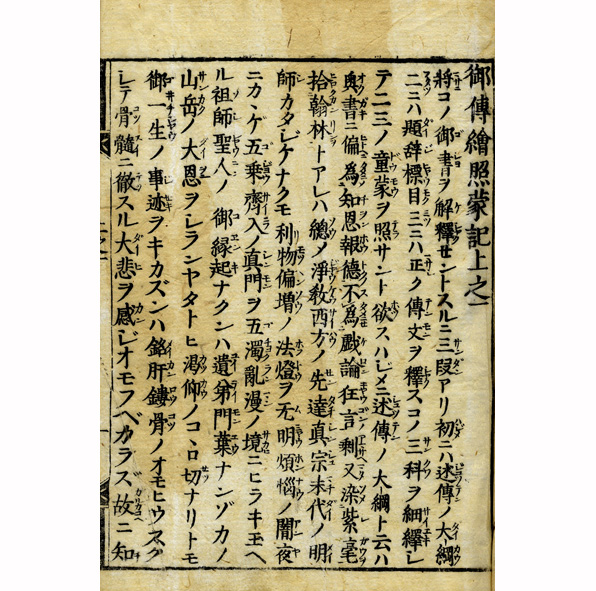 御傳繪照蒙記上之一
將コノ御書ヲ解釋せントスルニ三段アリ初ニハ述傳ノ大綱
二ニハ題辞標目三ニハ正ク傳文ヲ釋スコノ三科ヲ細繹シ
テ二三ノ童蒙ヲ照サント欲スハシメニ述傳ノ大綱ト云ハ
奥書ニ偏為知恩報德不為戯論狂言剰又染紫毫
拾翰林トアレハ總メ淨敎西方ノ先達真宗末代ノ明
師カタシケナクモ利物偏増ノ法燈ヲ无明煩惱ノ闇夜
ニカヽゲ五乗齊入ノ真門ヲ五濁亂漫ノ境ニヒラキ玉ヘ
ル祖師聖人ノ御縁起ナクンハ遺弟門葉ナンゾカノ
山岳ノ大恩ヲシランヤタトヒ渇仰ノコヽロ切ナリトモ
御一生ノ事迹ヲキカズンハ銘肝鏤骨ノオモヒウスク
シテ骨髓ニ徹スル大悲ヲ感シオモフヘカラス故ニ知